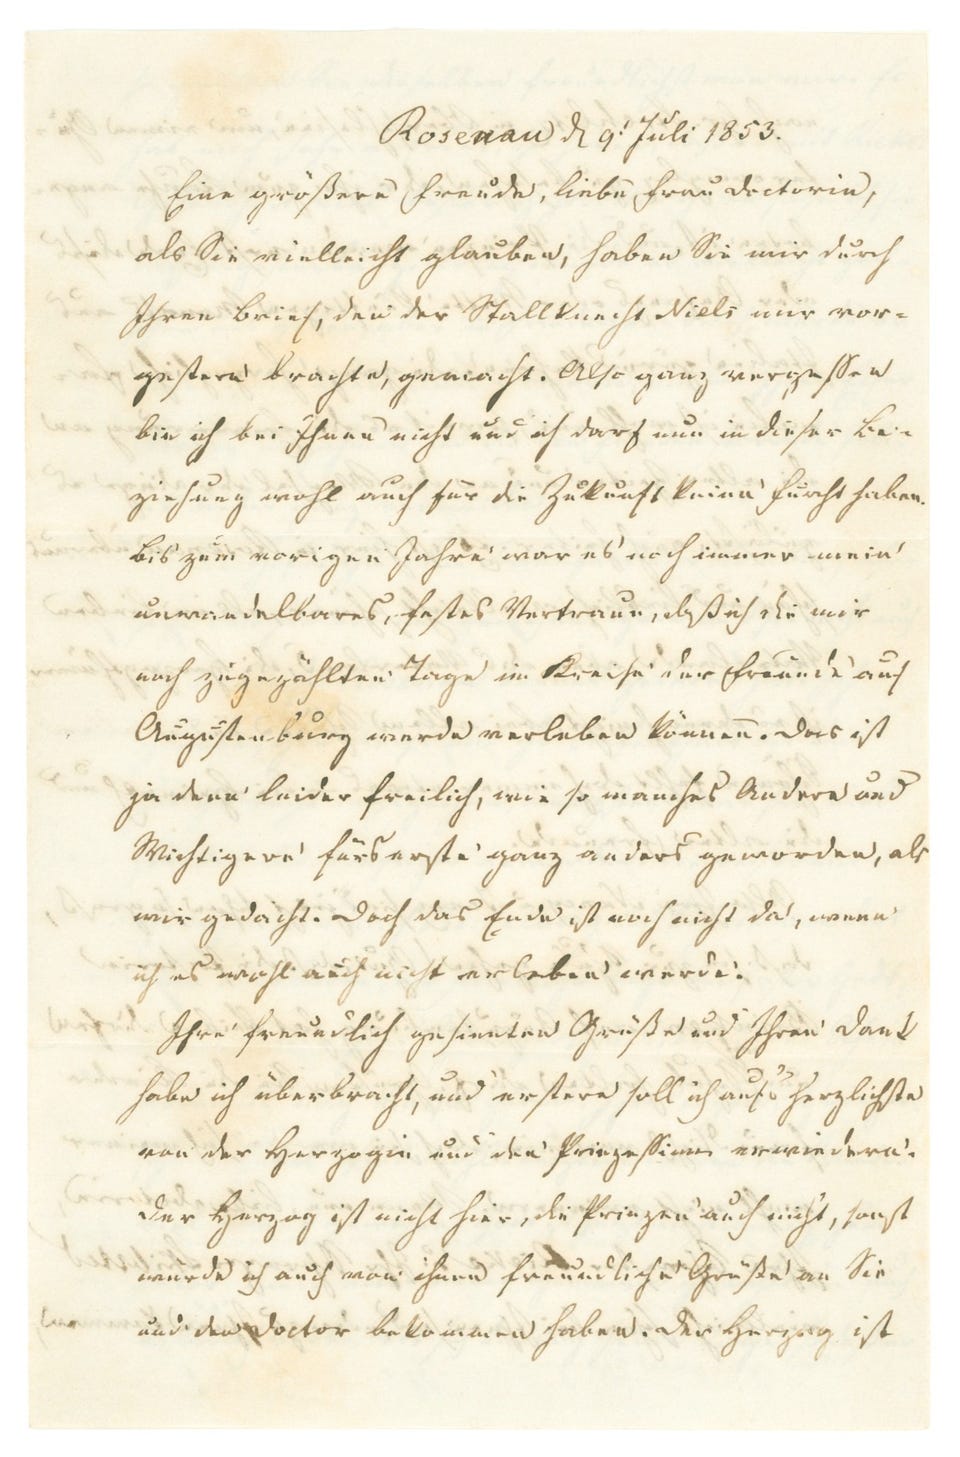 Rosenau d. 9t Juli 1853.
Eine größere Freude, liebe Frau Doctorin,
als Sie vielleicht glauben, haben Sie mir durch
Ihren Brief, den der Stallknecht Niels mir vor-
gestern brachte, gemacht. Also ganz vergessen
bin ich bei Ihnen nicht und ich darf nun in dieser Be-
ziehung wohl auch für die Zukunft keine Furcht haben.
Bis zum vorigen Jahre war es noch immer mein
unwandelbares, festes Vertraun, daß ich die mir
noch zugezählten Tage im Kreise der Freunde auf
Augustenburg werde verleben können. Das ist
ja denn leider freilich, wie so manches Andere und
Wichtigere fürs erste ganz anders geworden, als
wir gedacht. Doch das Ende ist noch nicht da, wenn
ich es wohl auch nicht erleben werde.
Ihre freundlich gesinnten Grüße und Ihren Dank
habe ich überbracht, und erstere soll ich aufs Herzlichste
von der Herzogin und den Prinzessinen erwiedern.
Der Herzog ist nicht hier, die Prinzen auch nicht, sonst
wurde ich auch von ihnen freundliche Grüße an Sie
und den Doctor bekommen haben. Der Herzog ist